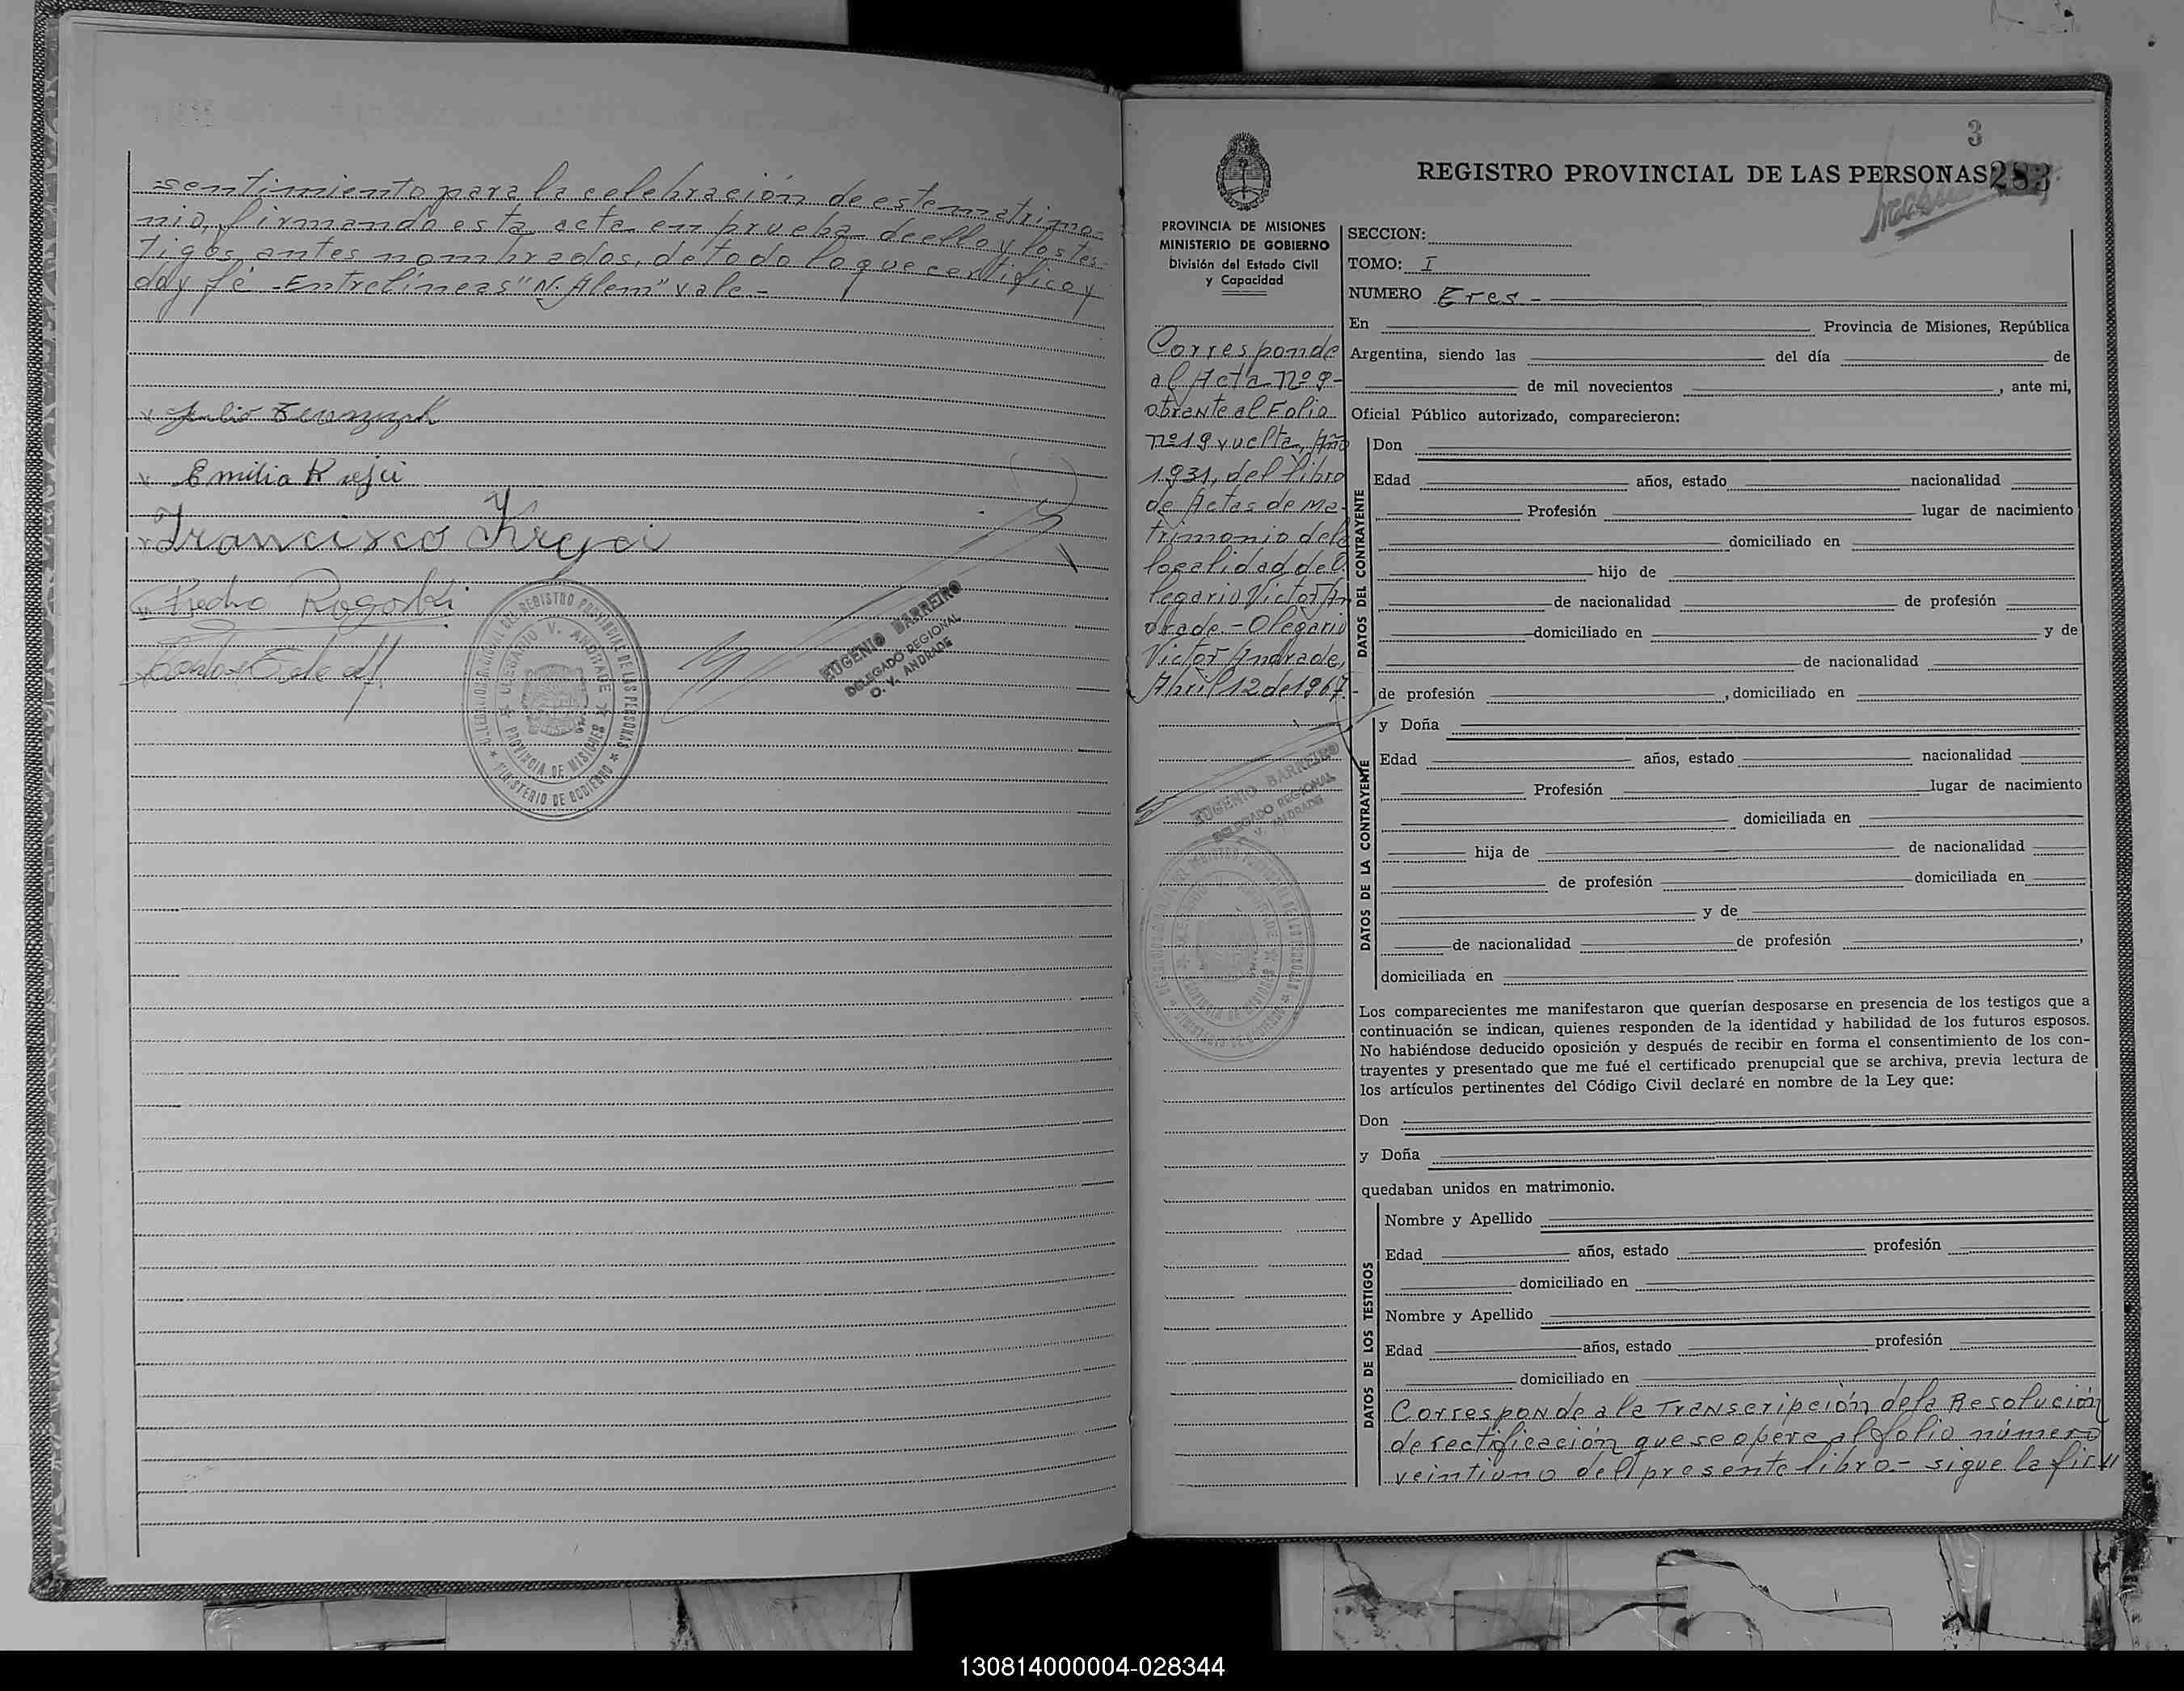 sentimiento para la celebración de este matrimo-
nio, firmando esta acta en prueba de ello y los tes-
tigos antes nombrados, de todo lo que certifico y
doy fé - Entrelíneas "N. Alem" vale -
Julio
Emilia Krejci
Francisco Krejci
Pedro Rogoski
DELEGACION REGIONAL DEL REGISTRO PROVINCIAL DE LAS PERSONAS
OLEGARIO V. ANDRADE
PROVINCIA DE MISIONES
MINISTERIO DE GOBIERNO
EUGENIO BARREIRO
DELEGADO REGIONAL
O. V. ANDRADE
3
REGISTRO PROVINCIAL DE LAS PERSONAS 283
PROVINCIA DE MISIONES
MINISTERIO DE GOBIERNO
División del Estado Civil
y Capacidad
Corresponde
al Acta Nº 9-
obrante al Folio
nº 19 vuelta, Año
1931, del libro
de Actas de Ma-
trimonio de la
localidad de O
legario Victor An
drade. - Olegario
Victor Andrade,
Abril 12 de 1967.-
EUGENIO BARREIRO
DELEGADO REGIONAL
O. V. ANDRADE
SECCION:
TOMO: I
NUMERO Tres -
En Provincia de Misiones, República
Argentina, siendo las del día de
de mil novecientos , ante mi,
Oficial Público autorizado, comparecieron:
DATOS DEL CONTRAYENTE
Don
Edad años, estado nacionalidad
Profesión lugar de nacimiento
domiciliado en
hijo de
de nacionalidad de profesión
domiciliado en y de
de nacionalidad
de profesión , domiciliado en
DATOS DE LA CONTRAYENTE
y Doña
Edad años, estado nacionalidad
Profesión lugar de nacimiento
domiciliada en
hija de de nacionalidad
de profesión domiciliada en
y de
de nacionalidad de profesión ,
domiciliada en
Los comparecientes me manifestaron que querían desposarse en presencia de los testigos que a
continuación se indican, quienes responden de la identidad y habilidad de los futuros esposos.
No habiéndose deducido oposición y después de recibir en forma el consentimiento de los con-
trayentes y presentado que me fué el certificado prenupcial que se archiva, previa lectura de
los artículos pertinentes del Código Civil declaré en nombre de la Ley que:
Don
y Doña
quedaban unidos en matrimonio.
DATOS DE LOS TESTIGOS
Nombre y Apellido
Edad años, estado profesión
domiciliado en
Nombre y Apellido
Edad años, estado profesión
domiciliado en
Corresponde a la Transcripción de la Resolución
de rectificación que se opera al folio número
veintiuno del presente libro.- sigue la fir //
130814000004-028344